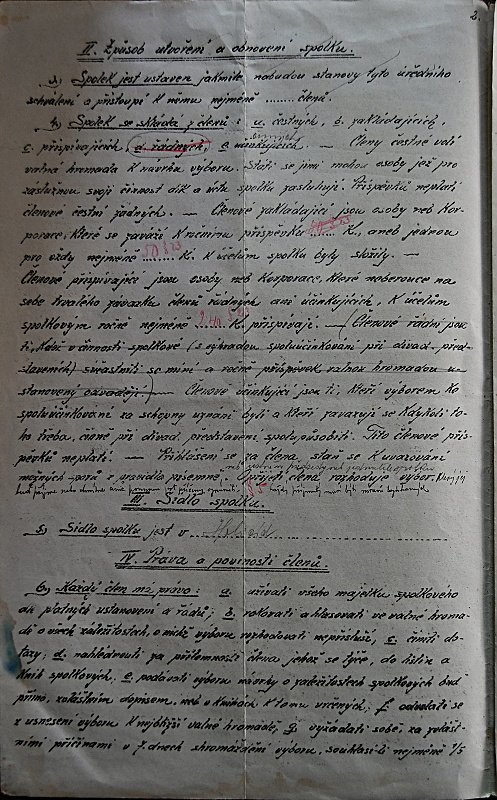 2.
II. Způsob utvoření a obnovení spolku.
3.) Spolek jest ustaven jakmile nabudou stanovy tyto úředního
schválení a přistoupí k němu nejméně ........ členů.
4.) Spolek se skládá z členů: a. čestných, b. zakládajících,
c. přispívajících d. řádných, e. účinkujících. — Členy čestné volí
valná hromada k návrhu výboru. Státi se jimi mohou osoby jež pro
záslužnou svoji činnost dík a úctu spolku zasluhují. Příspěvků neplatí
členové čestní žádných. — Členové zakládající jsou osoby neb kor-
porace, které se zaváží k ročnímu příspěvku ........ K., aneb jednou
pro vždy nejméně ........ K. k účelům spolku byly složily. —
Členové přispívající jsou osoby neb korporace, které neberouce na
sebe trvalého závazku členů řádných ani účinkujících, k účelům
spolkovým ročně nejméně ........ K. přispívají. — (Členové řádní jsou
ti, kdož v činnosti spolkové (s výhradou spoluúčinkování při divad. před-
staveních) súčastniti se míní a ročně příspěvek valnou hromadou u-
stanovený odvádějí.) — Členové účinkující jsou ti, kteří výborem ke
spoluúčinkování za schopny uznáni byli a kteří zavazují se kdykoli to-
ho třeba, činně při divad. představení spolupůsobiti. Tito členové přís-
pěvků neplatí. — Přihlášení se za člena, staň se k uvarování
možných sporů z pravidla písemně. O přijetí člena rozhoduje výbor,
III. Sídlo spolku.
5.) Sídlo spolku jest v
IV. Práva a povinnosti členů.
6.) Každý člen má právo: a. užívati všeho majetku spolkového
dle platných ustanovení a řádů; b. rokovati a hlasovati ve valné hroma-
dě o všech záležitostech, o nichž výboru rozhodovati nepřísluší, c. činiti do-
tazy; d. nahlédnouti za přítomnosti člena jehož se týče, do listin a
knih spolkových. e. podávati výboru návrhy o záležitostech spolkových buď
přímo, zvláštním dopisem, neb v knihách k tomu určených; f. odvolati se
z usnesení výboru k nejbližší valné hromadě, g. vyžádati sobě, za zvlášt-
ními příčinami v 7. dnech shromáždění výboru, souhlasí-li nejméně 1/5